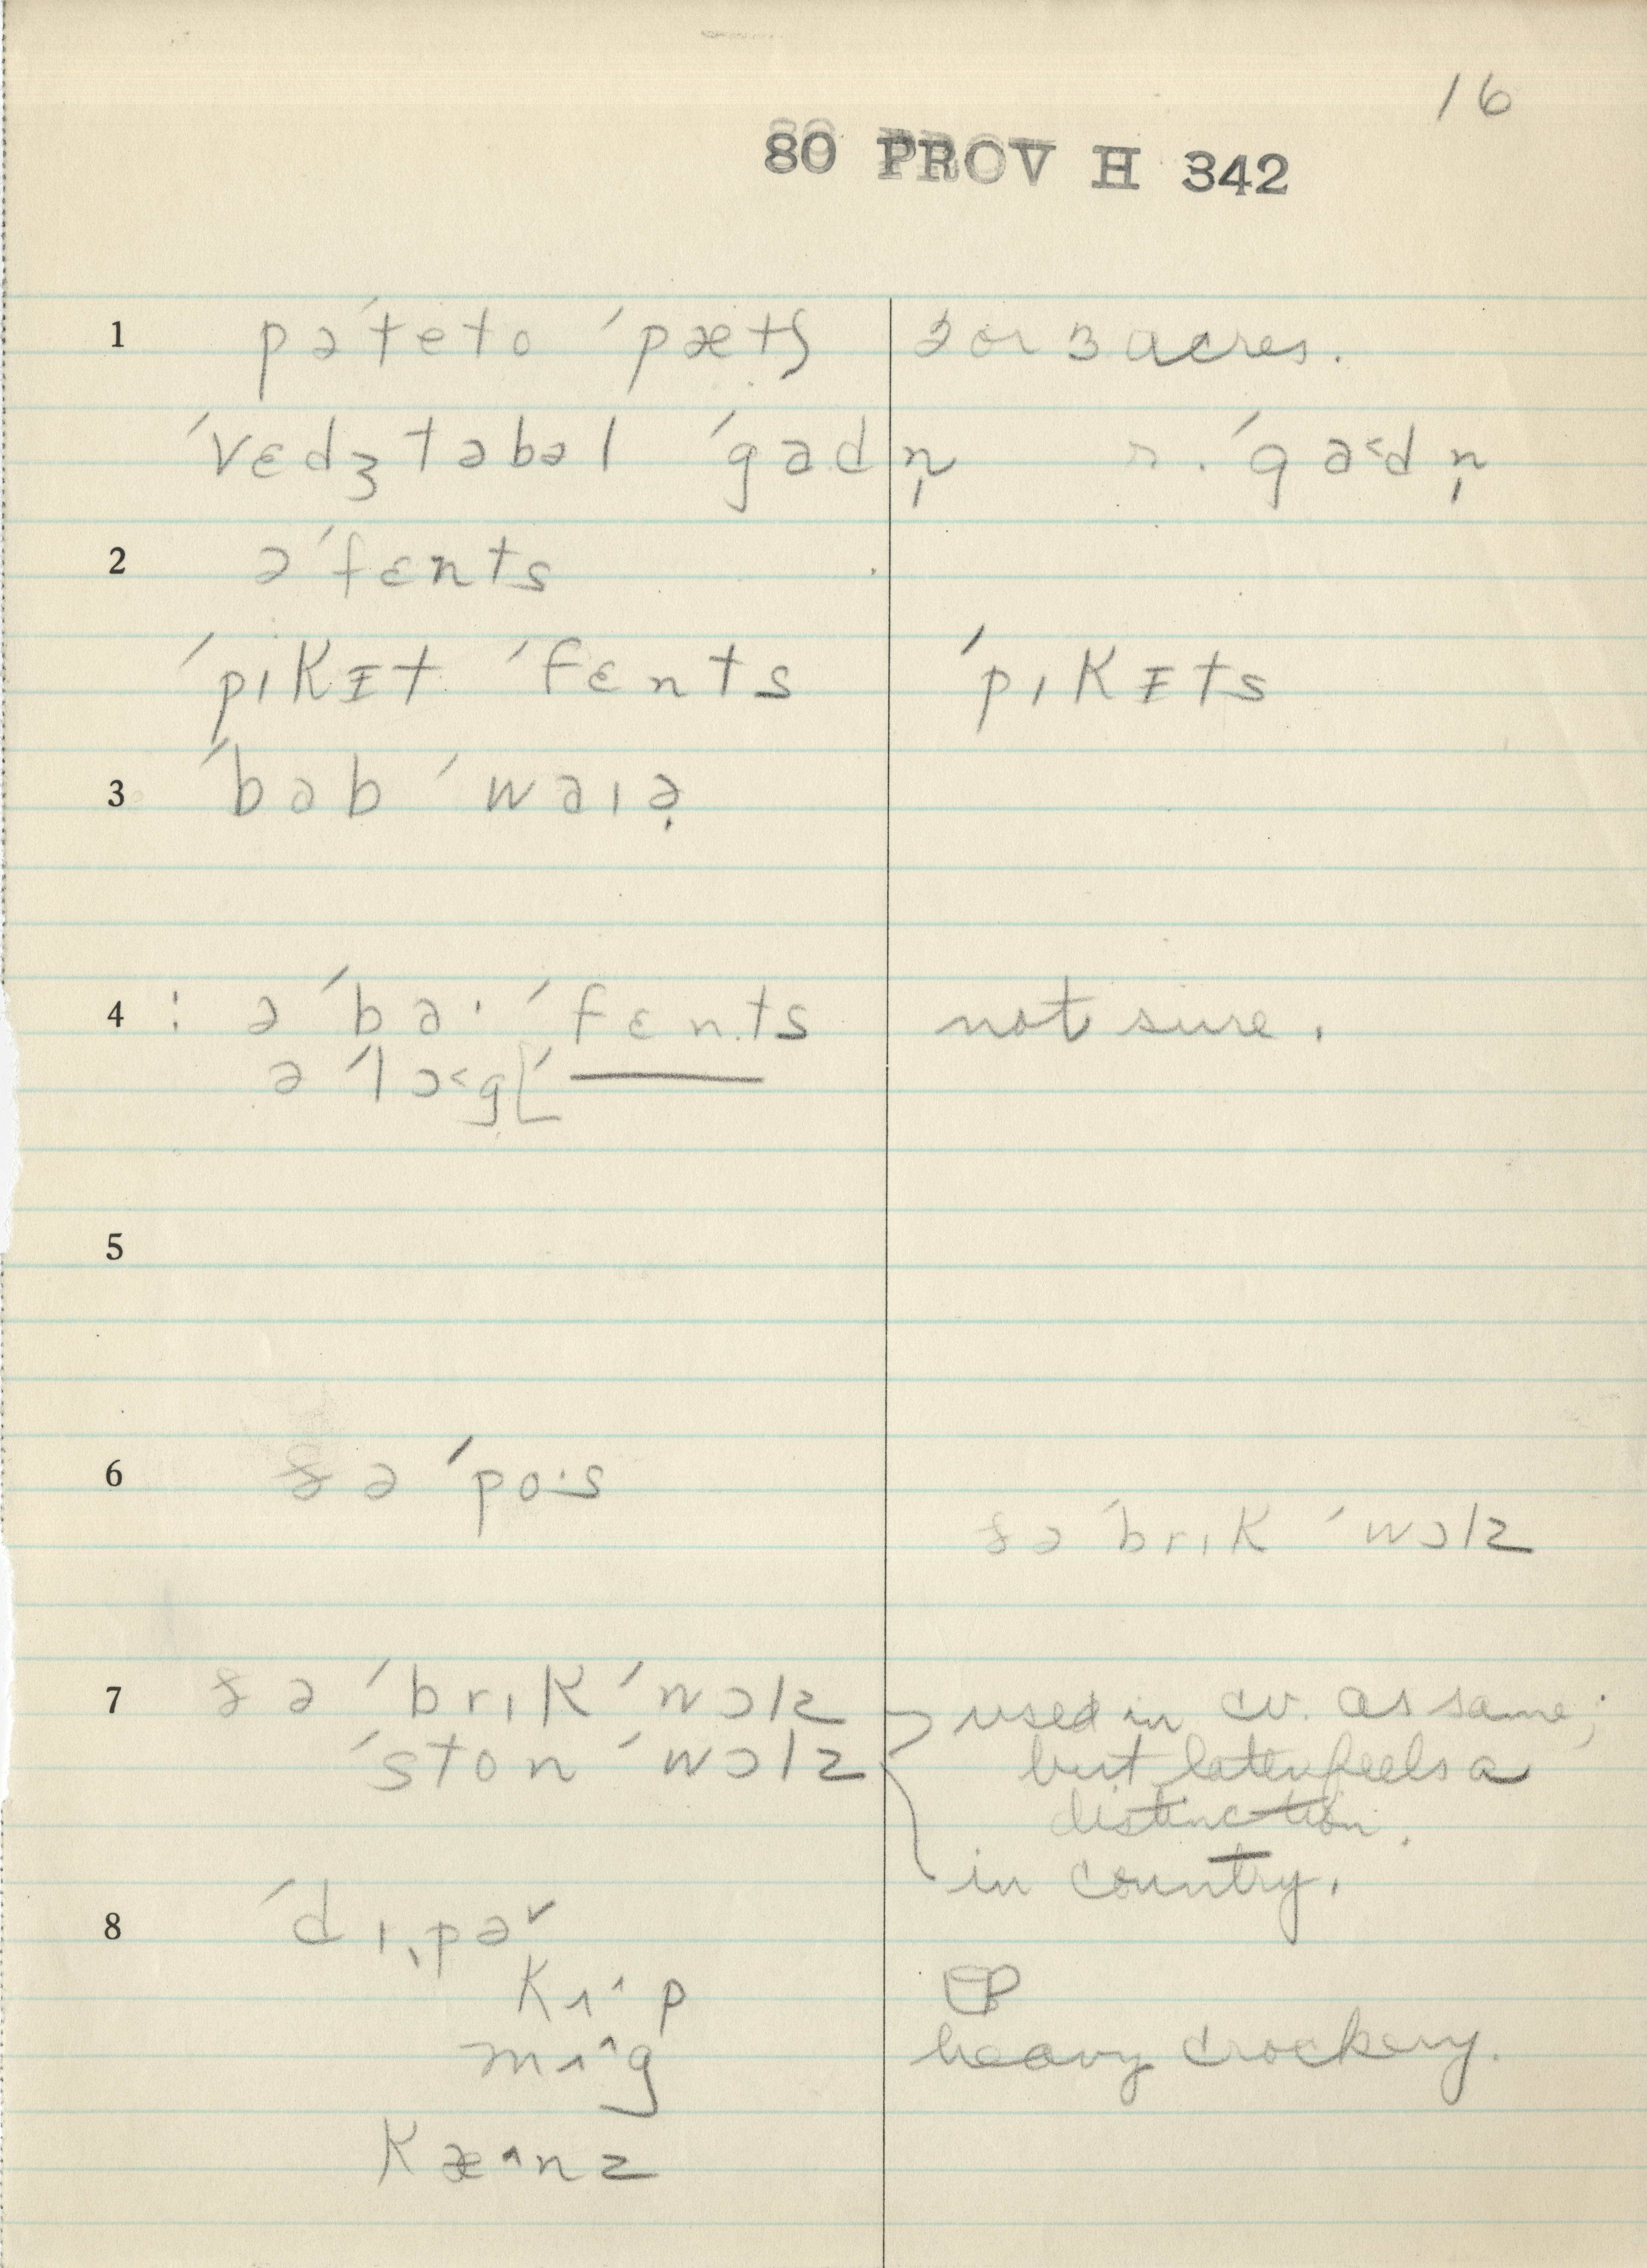 16
80 PROV H 342
1 pəˈteto ˈpætʃ 2 or 3 acres.
ˈvɛdʒtəbəl ˈgadn̩ r. ˈga˂dn̩
2 əˈfɛnts
ˈpɪkɪt ˈfɛnts ˈpɪkɪts
3 ˈbab ˈwaɪə̣
4 : ə ˈba· ˈfɛnts not sure.
ə ˈlɔ˂g[ˈ——
5
6 ðə ˈpo·s
ðə ˈbrɪk ˈwɔlz
7 ðə ˈbrɪk ˈwɔlz used in cv. as same;
ˈston ˈwɔlz but later feels a
distinction.
in country.
8 ˈdɪˌpə˅
kʌ^p
mʌ^g heavy crockery.
kæ^nz